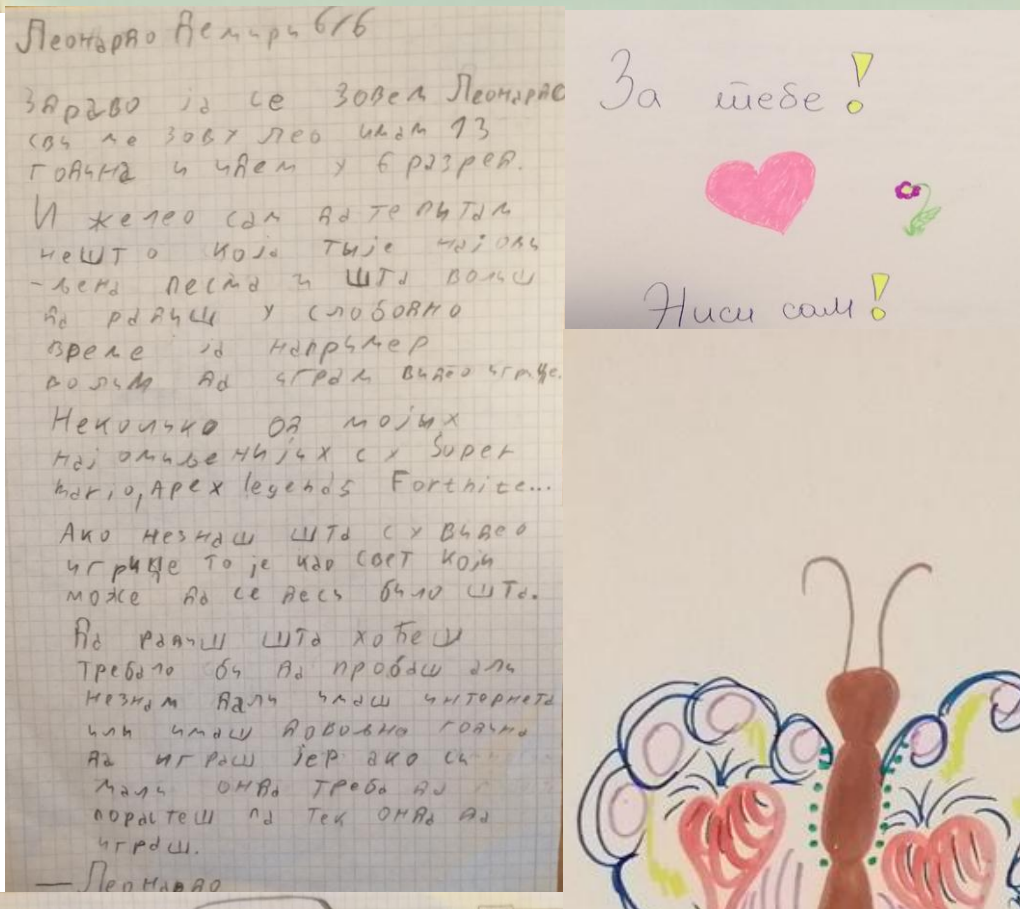 Леонардо Демири 6/6
Здраво ја се зовем Леонардо
сви ме зову Лео имам 13
година и идем у 6 разред.
И желео сам да те питам
нешто која ти је најоми
-љена песма и шта волиш
да радиш у слободно
време ја например
волим да играм видео игрице.
Неколико од мојих
најомиљенијих су Super
mario, Apex legends Forthite...
Ако незнаш шта су видео
игрице то је као свет који
може да се деси било шта.
Да радиш шта хоћеш
требало би да пробаш али
незнам дали имаш интернета
или имаш довољно година
да играш јер ако си
мали онда треба да
порастеш па тек онда да
играш.
— Леонардо
За тебе!
Ниси сам!